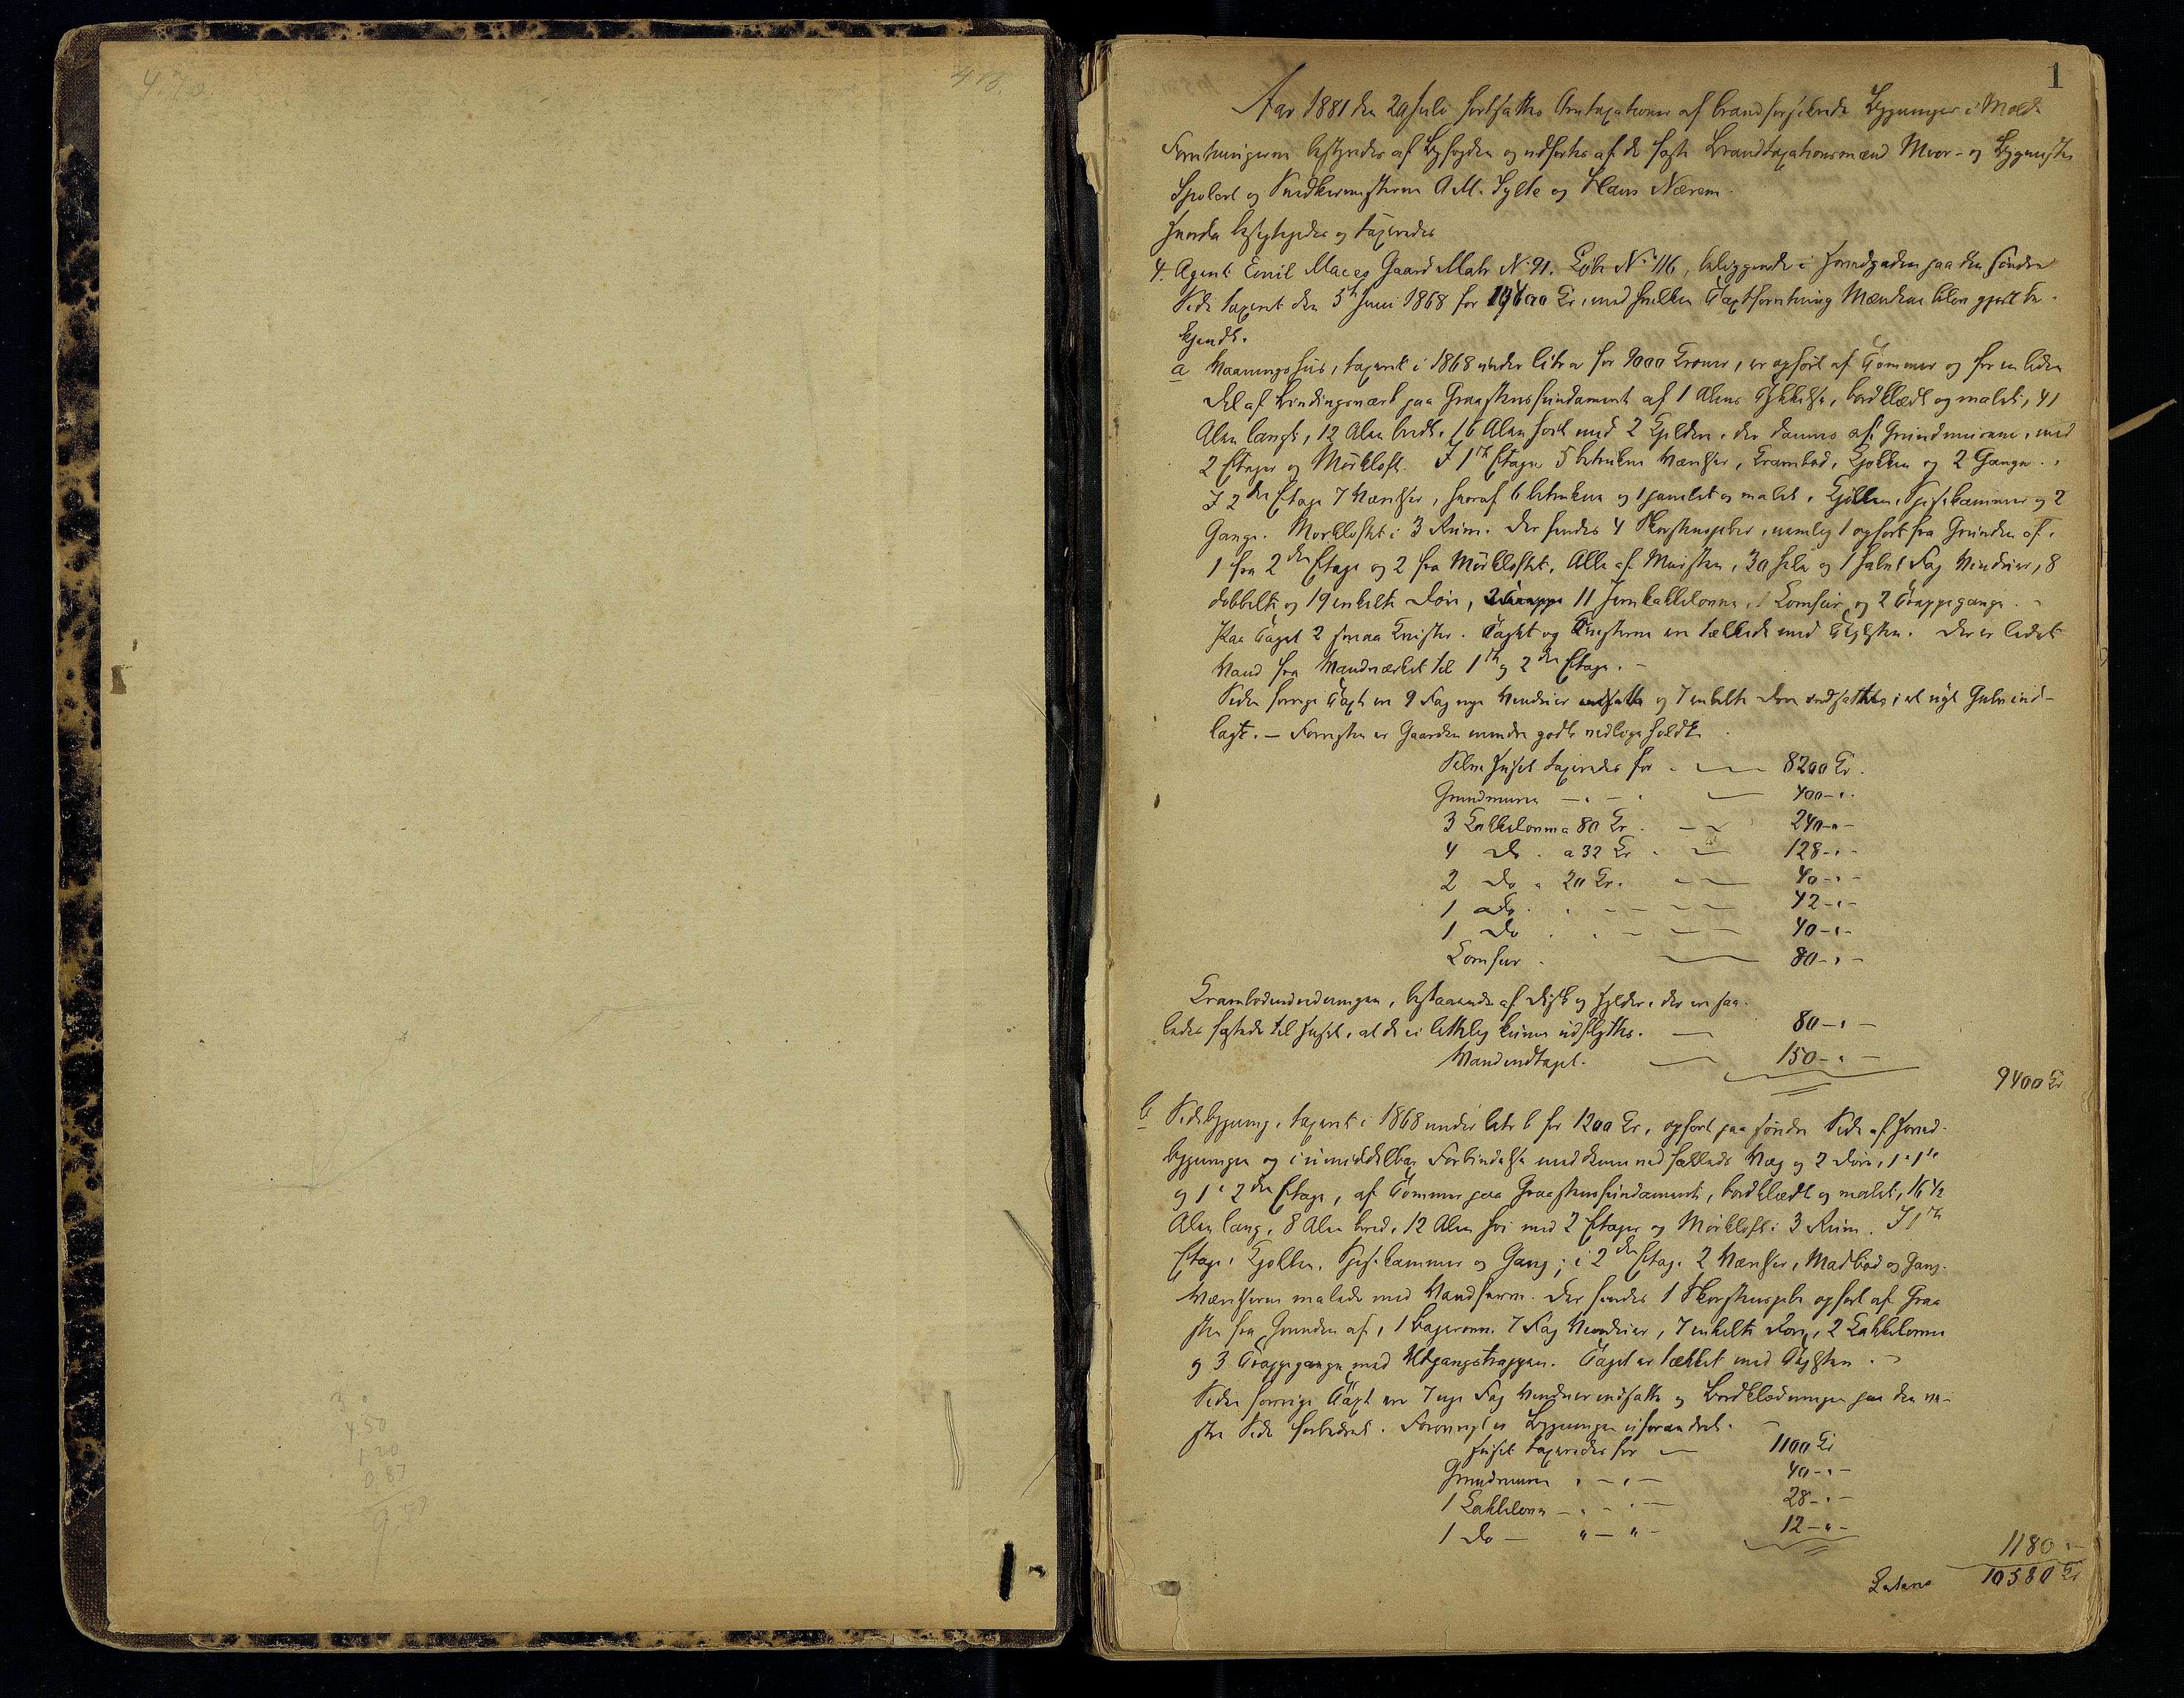 1
Aar 1881 den 20 Juli fortsattes Omtaxationer af brandforsikrede Bygninger i Molde
Forretningerne bestyredes af Byfogden og udførtes af de faste Brandtaxationsmænd Muur- og Bygmester
og Snedkermesterne A. M. Sylte og Hans Nærem.
Hvorda besigtigedes og taxeredes
4. Agent Emil Maces Gaard Matr N. 91. Løbe No 116, beliggende i Hovedgaden paa den søndre
Side taxeret den 5te Juni 1868 for Kr, med hvilken Taxtforretning Mændene bleve gjort be-
kjendt.
a Vaaningshus, taxeret i 1868 under litr a for 9000 Kroner, er opført af Tømmer og for en liden
Del af Bindingsværk paa Graastensfundament af 1 Alens Tykkelse, bordklædt og malet, 41
Alen langt, 12 Alen bredt, 16 Alen høit med 2 Kjeldere, der dannes af Grundmurene, med
2 Etager og Mørkloft. I 1ste Etage 5 betrukne Værelser, Krambod, Kjøkken og 2 Gange.
I 2den Etage 7 Værelser, hvoraf 6 betrukne og 1 panelet og malet, Kjøkken, Spisekammer og 2
Gange. Mørkloftet i 3 Rum. Der findes 4 Skorstenspiber, nemlig 1 opført fra Grunden af,
1 fra 2den Etage og 2 fra Mørkloftet, Alle af Mursten, 30 hele og 1 halvt Fag Vinduer, 8
dobbelte og 19 enkelte Døre, 11 Jernkakkelovne, 1 Komfur og 2 Trappegange.
Paa Taget 2 smaa Kvister. Taget og Kvisterne ere tækkede med Tegelsten. Der er ledet
Vand fra Vandværket til 1ste og 2den Etage.
Siden forrige Taxt ere 9 Fag nye Vinduer og 7 enkelte Døre indsattes, et nyt Gulv ind-
lagt. — Forresten er Gaarden mindre godt vedligeholdt.
Selve Huset taxeredes for — 8200 Kr.
Grundmuren — 400 - " -
3 Kakkelovne a 80 Kr. — 240 - " -
4 Do. a 32 Kr — 128 - " -
2 Do a 20 Kr. — 40 - " -
1 Do. — 42 - " -
1 Do — 40 - " -
Komfur — 80 - " -
Krambodindredningen, bestaaende af Disk og Hylder, der ere saa-
ledes fæstede til Huset, at de ei lettelig kunne udflyttes. — 80 - " -
Vandindtaget. — 150 - " -
9400 Kr
b Sidebygning, taxeret i 1868 under litr b for 1200 Kr, opført paa søndre Side af Hoved-
bygningen og i umiddelbar Forbindelse med denne ved fælleds Væg og 2 Døre, 1 i 1ste
og 1 i 2den Etage, af Tømmer paa Graastensfundament, bordklædt og malet, 16 1/2
Alen lang, 8 Alen bred, 12 Alen høi med 2 Etager og Mørkloft i 3 Rum. I 1ste
Etage, Kjøkken, Spisekammer og Gang; i 2den Etage 2 Værelser, Madbod og Gang.
Værelserne malede med Vandfarve. Der findes 1 Skorstenspibe opført af Graa
sten fra Grunden af, 1 Bagerovn. 7 Fag Vinduer, 7 enkelte Døre, 2 Kakkelovne
og 3 Trappegange med Udgangstrappen. Taget er tækket med Tegelsten. —
Siden forrige Taxt ere 7 nye Fag Vinduer indsatte og Bordklædningen paa den ve-
stre Side forbedret. Forøvrigt er Bygningen uforandret. —
Huset taxeredes for — 1100 Kr
Grundmuren " — " — 40 - " -
1 Kakkelovn — " — 28 - " -
1 Do — " — " — 12 - " -
1180 " -
Latus 10580 Kr
3
4.50
1.20
0.87